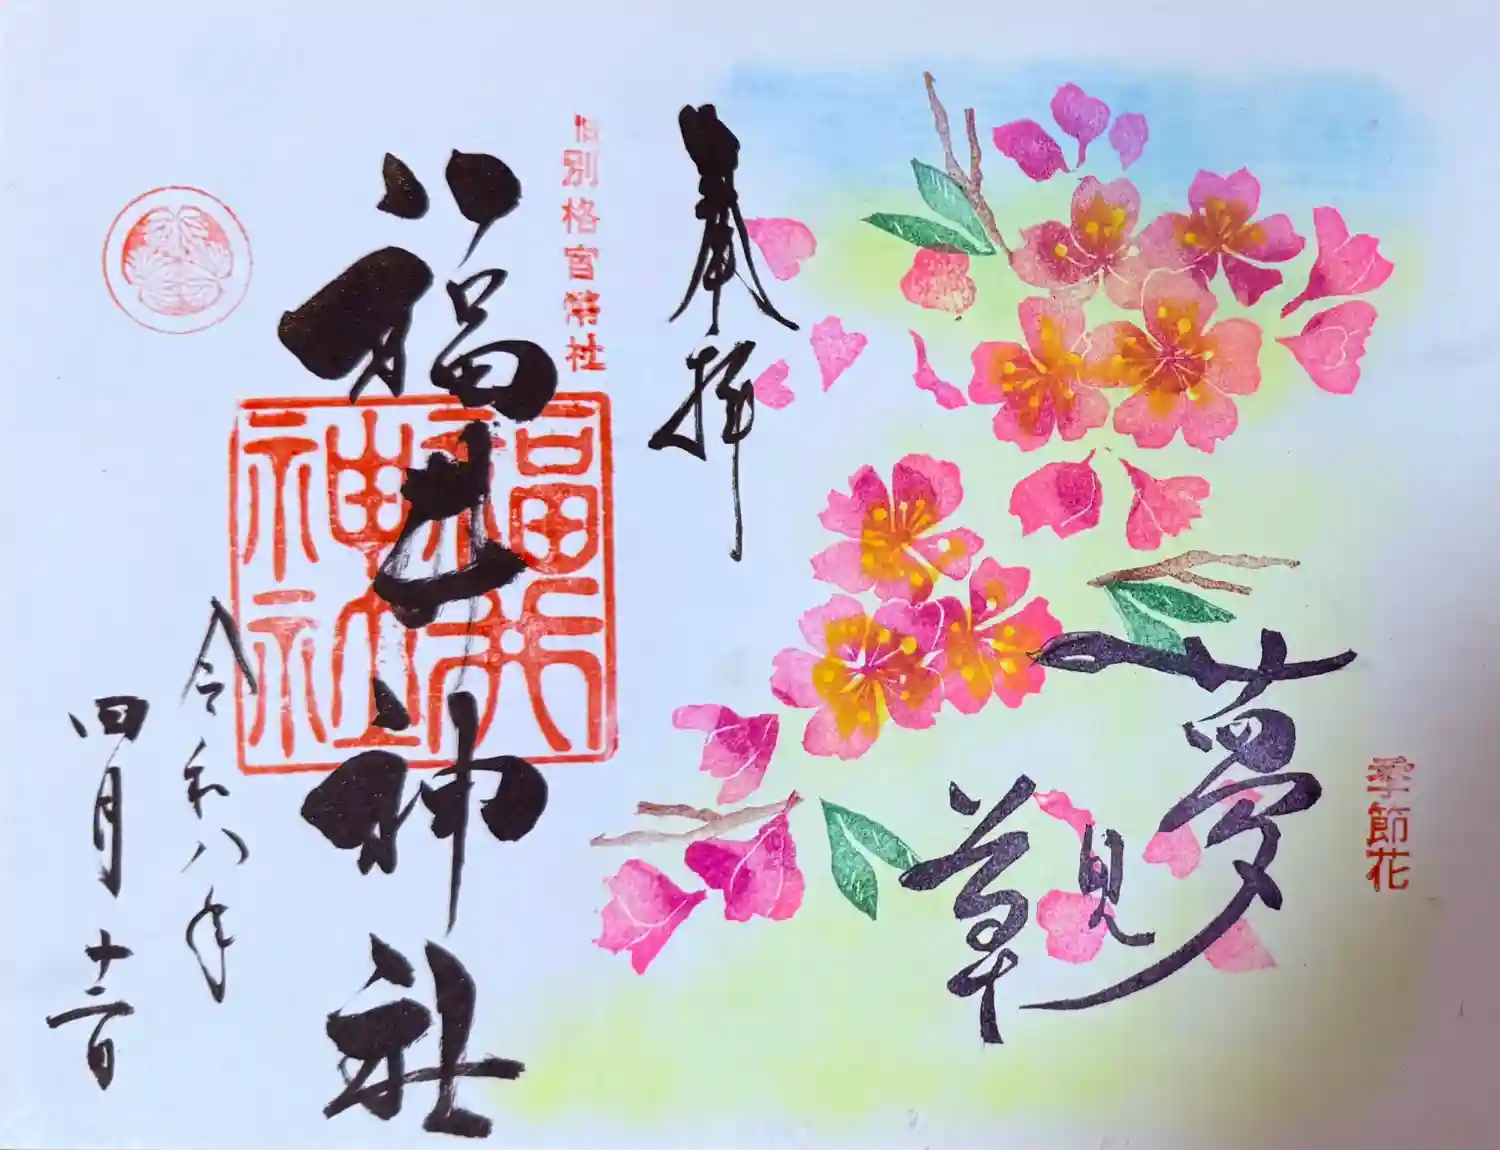 季節花
夢
見
草
奉拝
旧別格官幣社
福井神社
福井
神社
令和八年
四月十二日